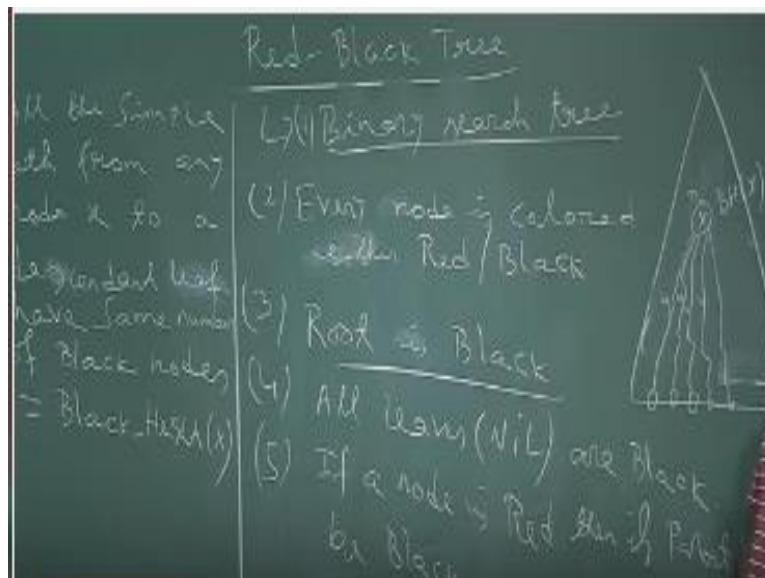 Red-Black Tree
All the Simple
path from any
node x to a
descendant leaf
have same number
of Black nodes
= Black_Height(x)
(1) Binary search tree
(2) Every node is colored
either Red/Black
(3) Root is Black
(4) All leaves (NiL) are Black
(5) If a node is Red then its Parent
be Black
BH(x)
x